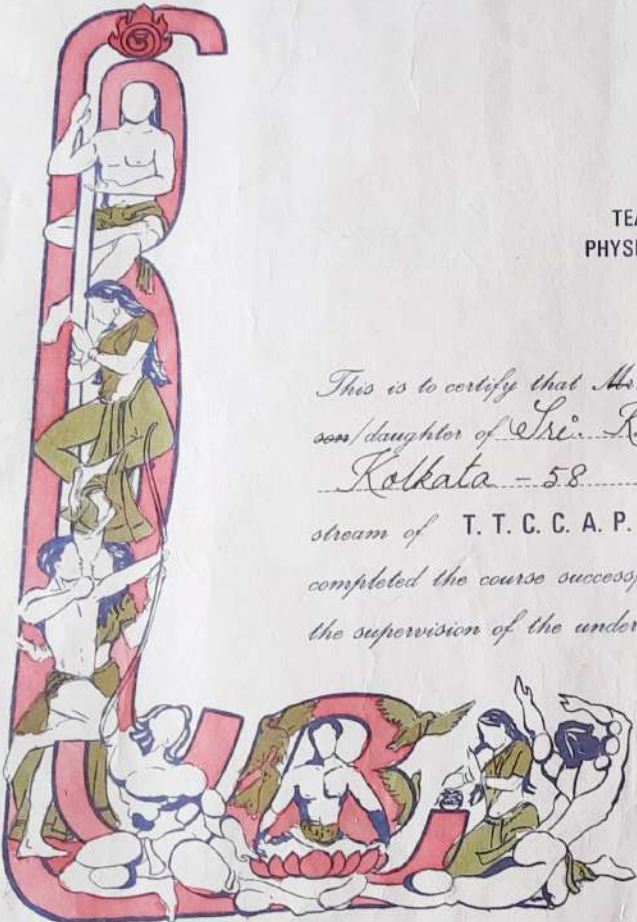 TEA
PHYSI
This is to certify that Mr.
son/daughter of Sri. K
Kolkata - 58
stream of T. T. C. C. A. P.
completed the course success
the supervision of the under